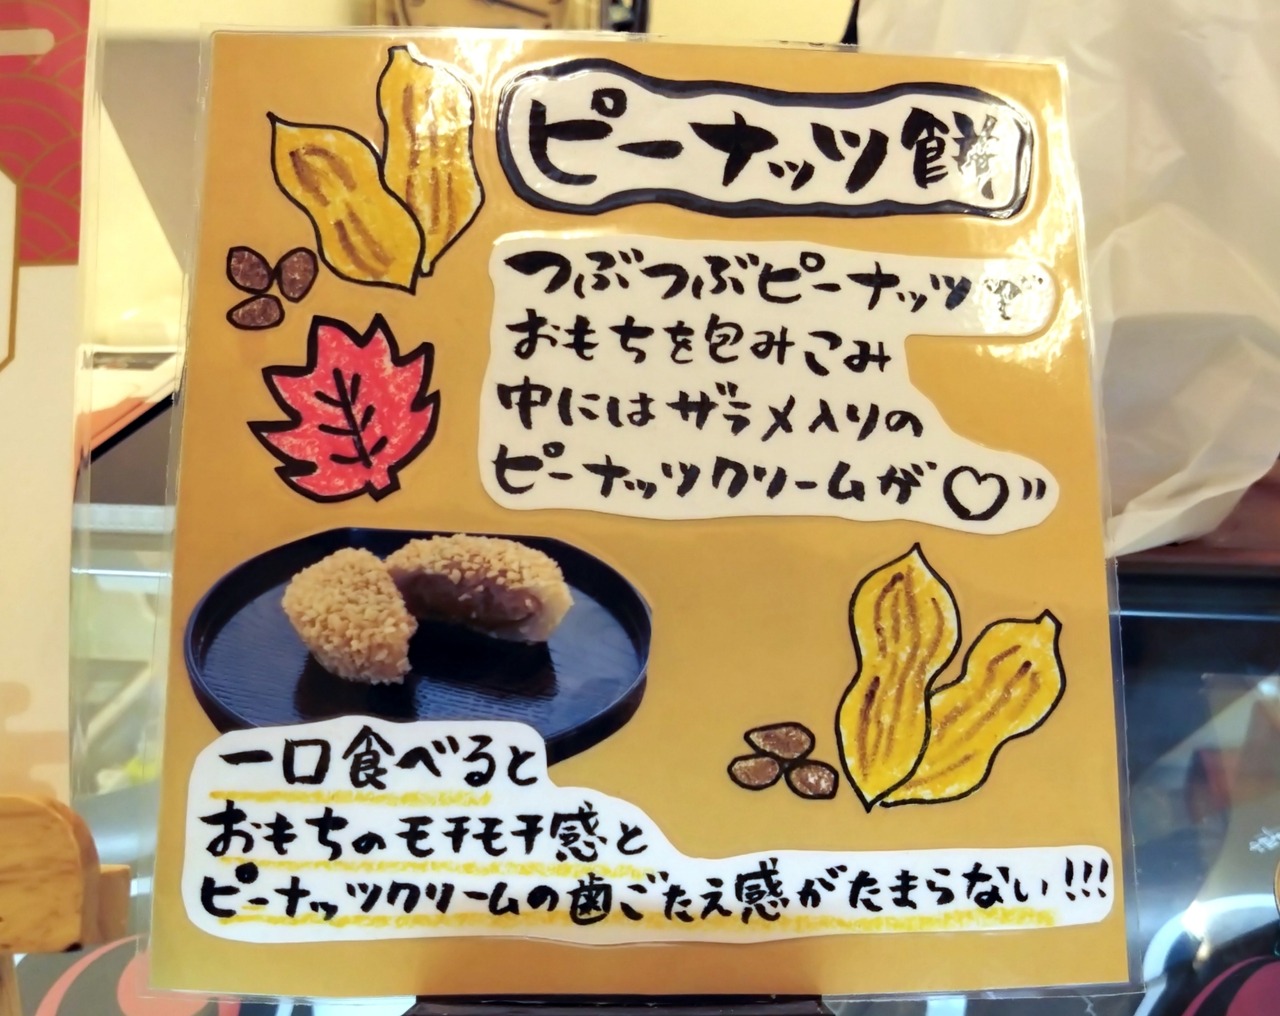 ピーナッツ餅
つぶつぶピーナッツで
おもちを包みこみ
中にはザラメ入りの
ピーナッツクリームが♡〃
一口食べると
おもちのモチモチ感と
ピーナッツクリームの歯ごたえ感がたまらない!!!